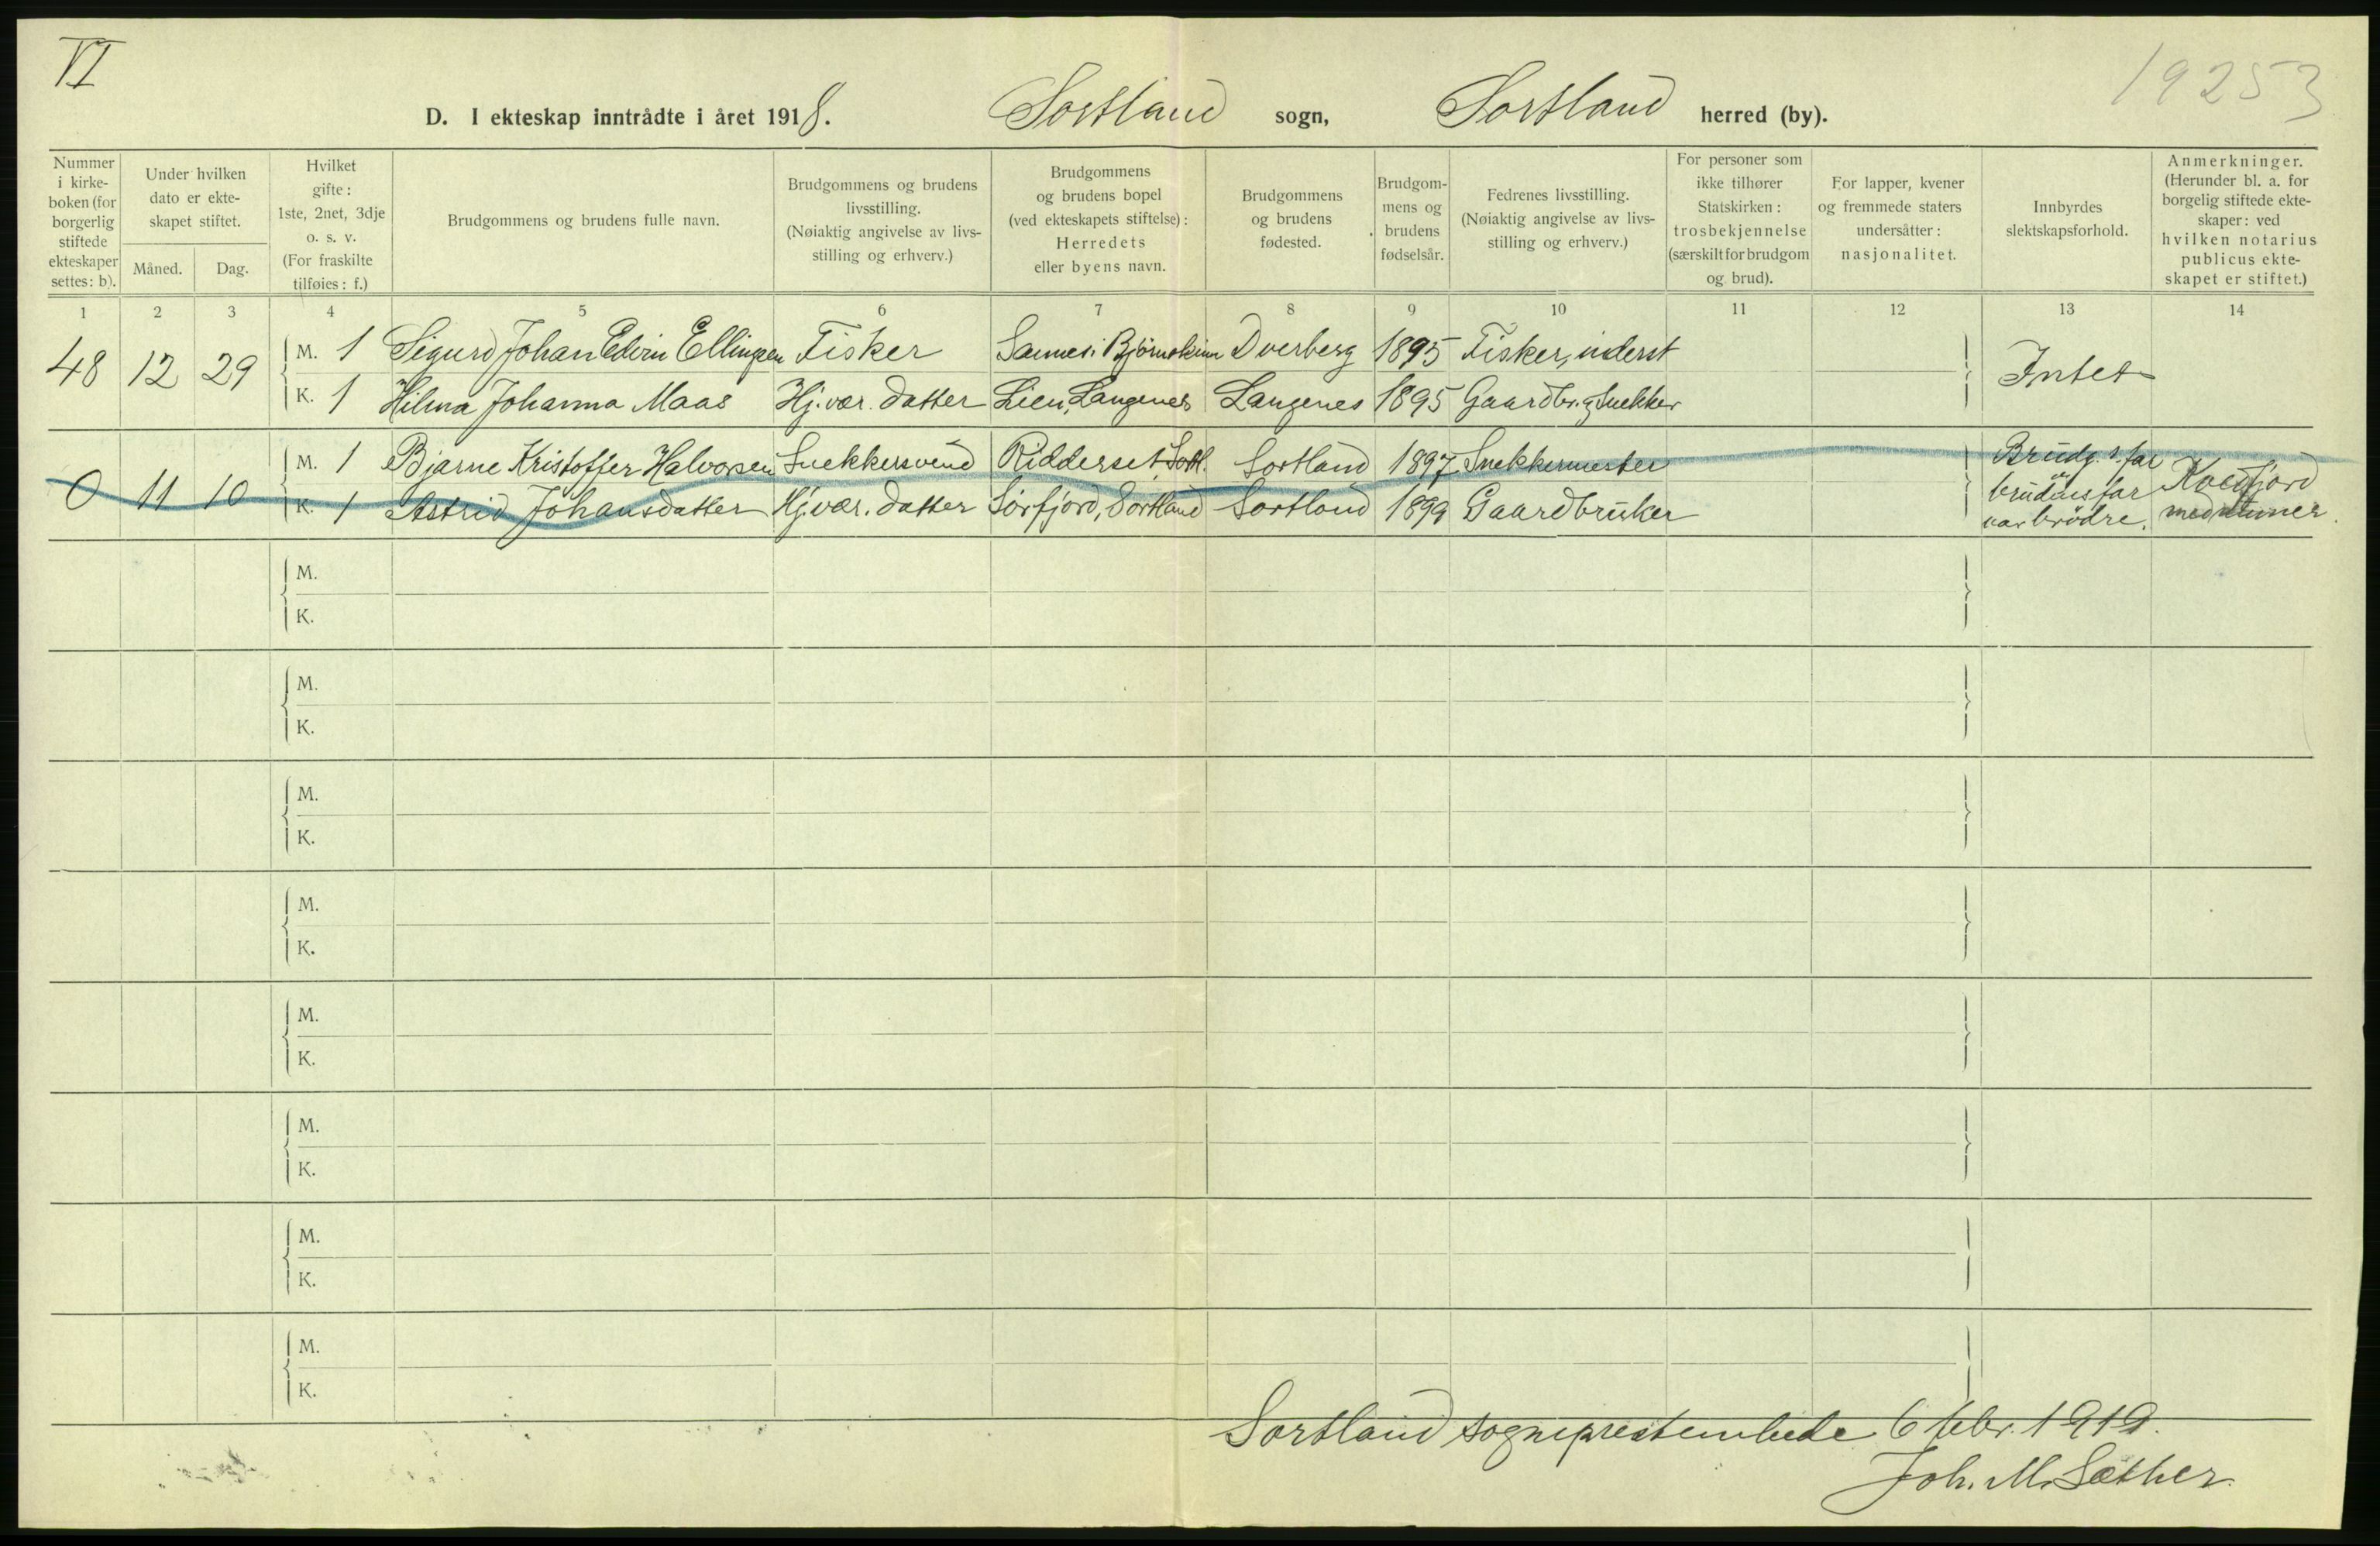 VI
19253
D. I ekteskap inntrådte i året 1918. Sortland sogn, Sortland herred (by).
Nummer i kirke-boken (for borgerlig stiftede ekteskaper settes: b).
Under hvilken dato er ekte-skapet stiftet.
Måned. Dag.
Hvilket gifte: 1ste, 2net, 3dje o. s. v. (For fraskilte tilføies: f.)
Brudgommens og brudens fulle navn.
Brudgommens og brudens livsstilling. (Nøiaktig angivelse av livs-stilling og erhverv.)
Brudgommens og brudens bopel (ved ekteskapets stiftelse): Herredets eller byens navn.
Brudgommens og brudens fødested.
Brudgom-mens og brudens fødselsår.
Fedrenes livsstilling. (Nøiaktig angivelse av livs-stilling og erhverv.)
For personer som ikke tilhører Statskirken: trosbekjennelse (særskilt for brudgom og brud).
For lapper, kvener og fremmede staters undersåtter: nasjonalitet.
Innbyrdes slektskapsforhold.
Anmerkninger. (Herunder bl. a. for borgelig stiftede ekte-skaper: ved hvilken notarius publicus ekte-skapet er stiftet.)
1 2 3 4 5 6 7 8 9 10 11 12 13 14
48 12 29 M. 1 Sigurd Johan Edvin Ellingsen Fisker Sannes i Bjørnskinn Dverberg 1895 Fisker, inderst Intet
K. 1 Hilma Johanna Maas Hj. vær. datter Lien, Langenes Langenes 1895 Gaardbr. og Snekker
0 11 10 M. 1 Bjarne Kristoffer Halvorsen Snekkersvend Ridderset Sortl. Sortland 1897 Snekkermester Brudg.s far og brudens far var brødre. Kvedfjord
K. 1 Astrid Johansdatter Hj. vær. datter Sørfjord, Sortland Sortland 1899 Gaardbruker
M.
K.
M.
K.
M.
K.
M.
K.
M.
K.
M.
K.
M.
K.
M.
K.
Sortland sogneprestembede 6 febr. 1919.
Joh. M. Sæther.